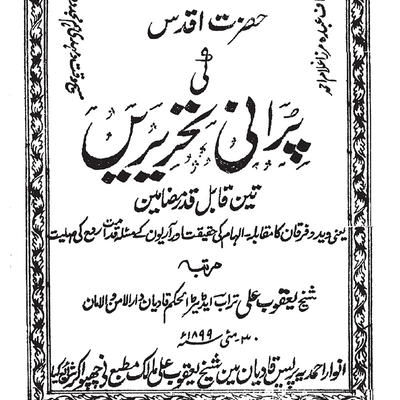 حضرت اقدس
کی
پرانی تحریریں
تین قابل قدر مضامین
یعنی وید و فرقان کا مقابلہ۔ الہام کی حقیقت اور آریون کے مسئلہ قدامت روح کی اصلیت
مرتبہ
شیخ یعقوب علی تراب ایڈیٹر الحکم قادیان دارالامن والامان
۳۰ مئی ۱۸۹۹ء
انوار احمدیہ پریس قادیان مین شیخ یعقوب علی مالک مطبع نے چھپوا کر شائع کیا